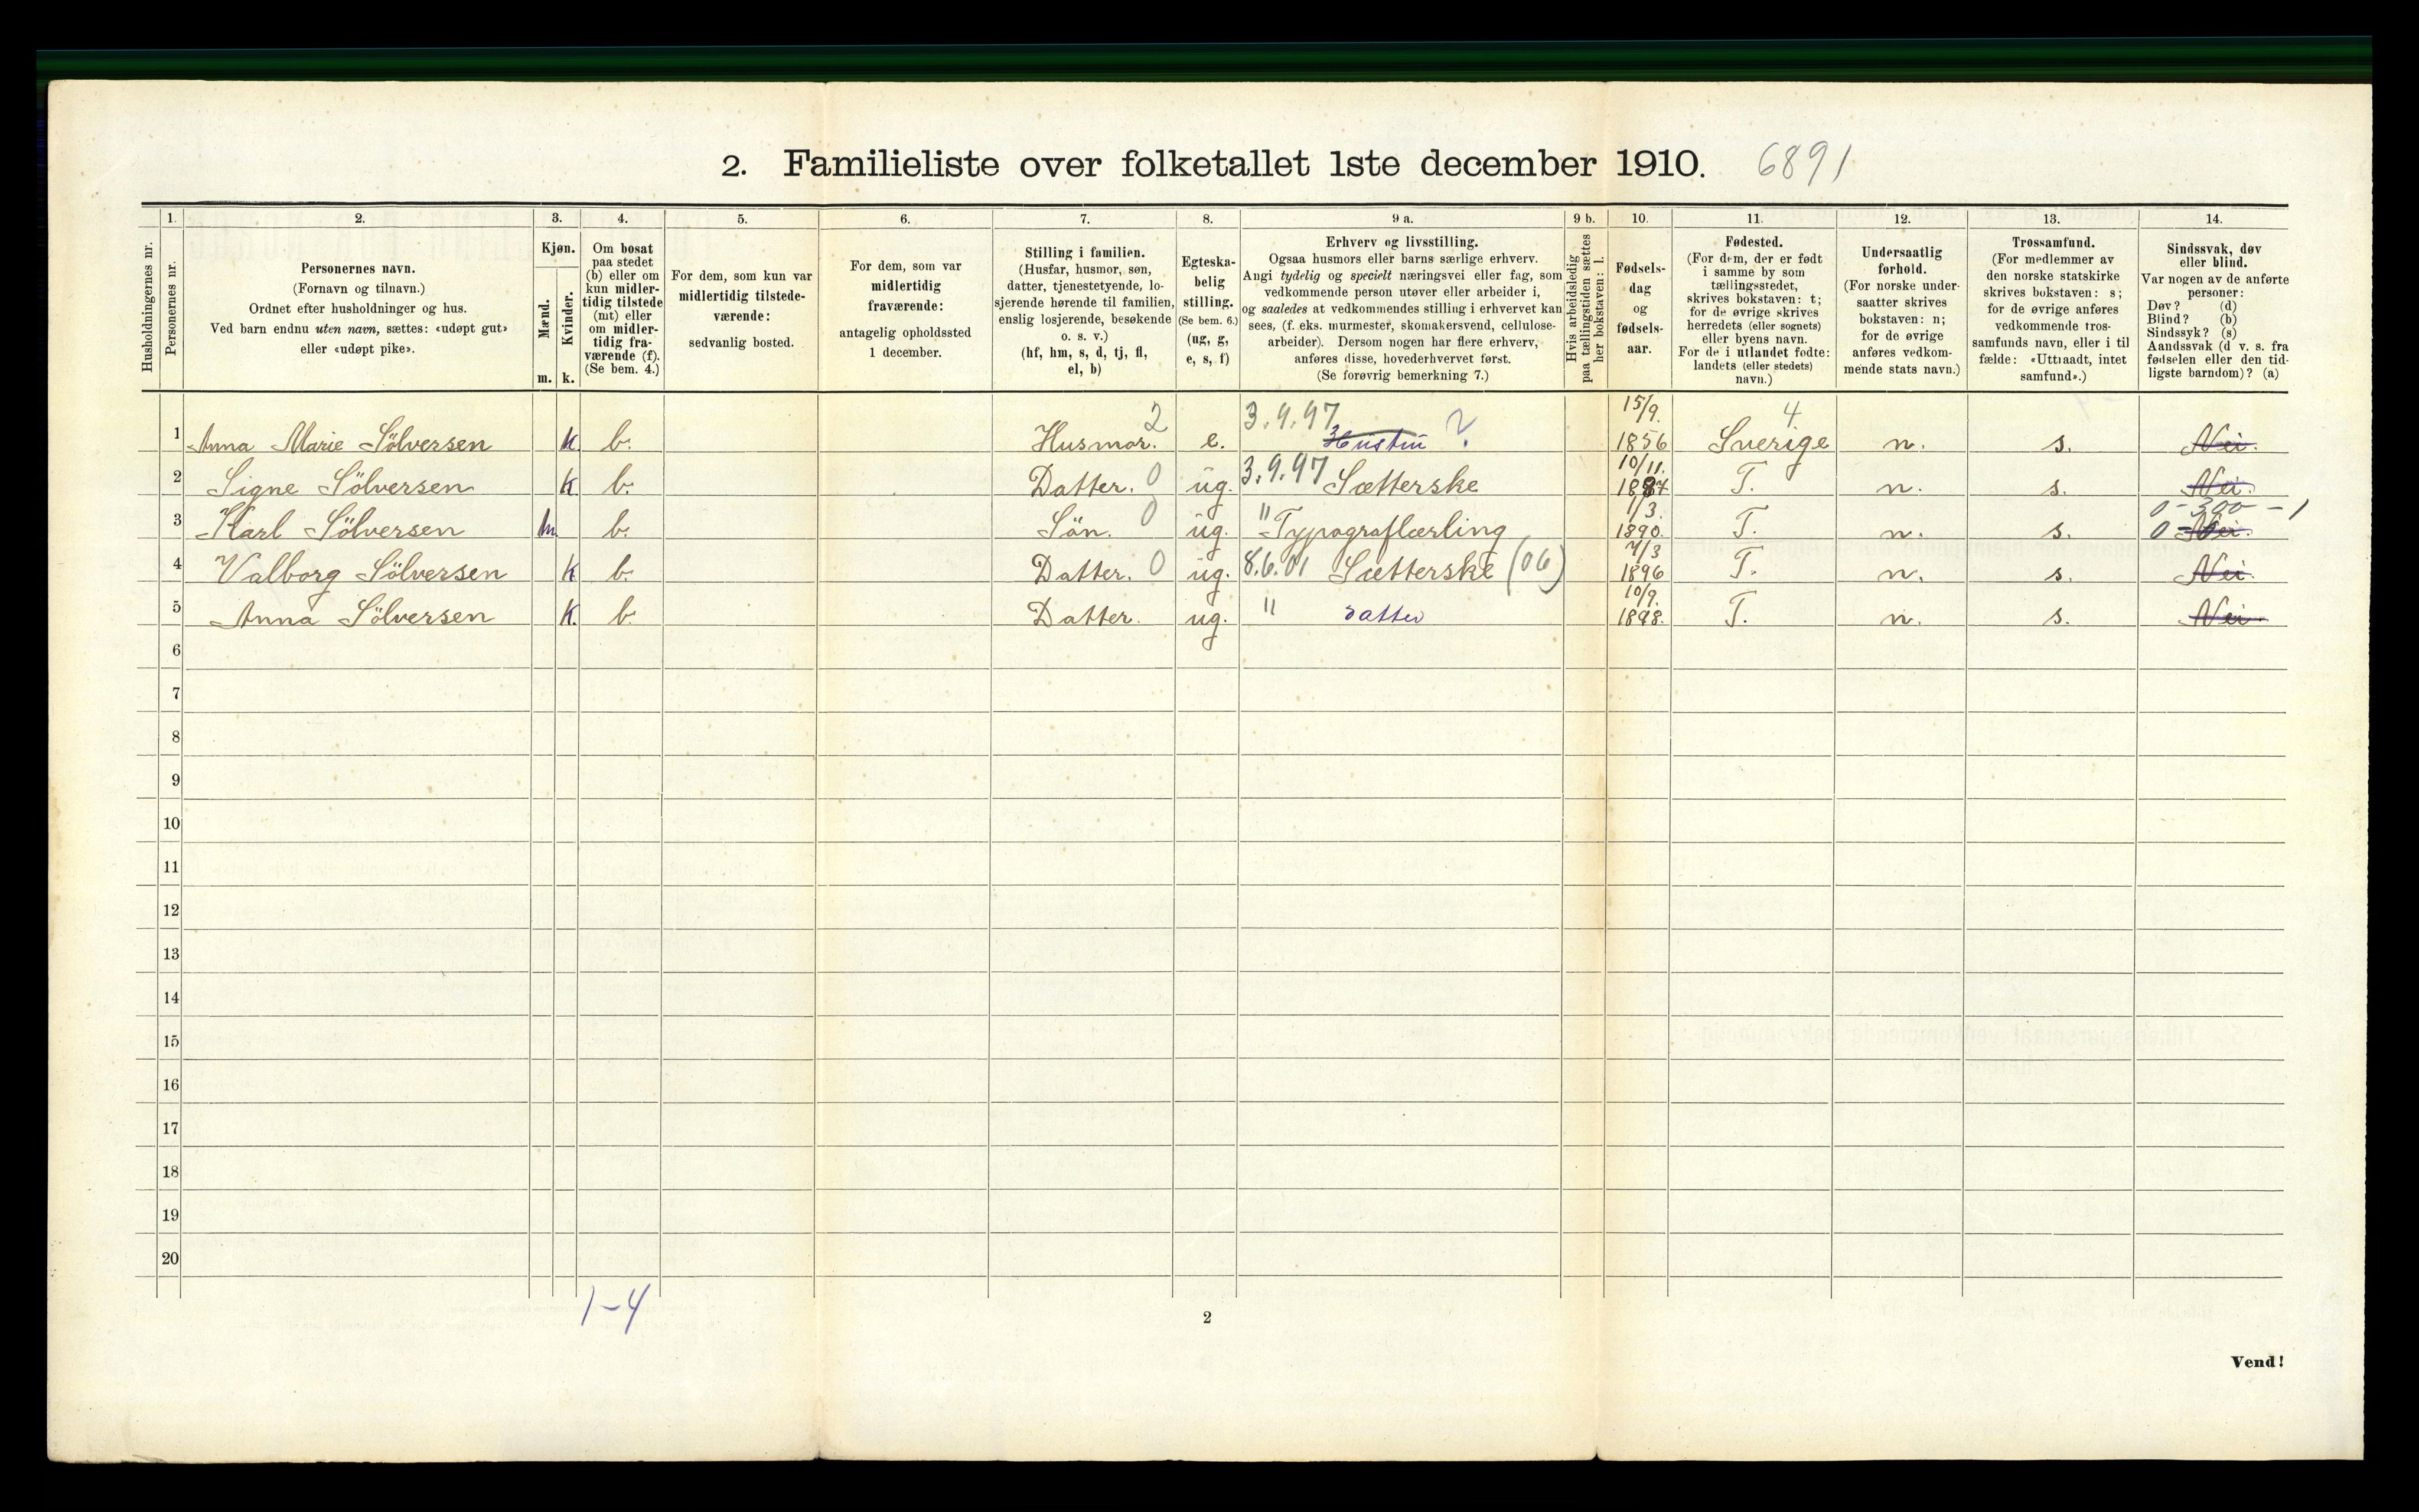 2. Familieliste over folketallet 1ste december 1910. 6891
Husholdningernes nr.
1. Personernes nr.
2. Personernes navn. (Fornavn og tilnavn.) Ordnet efter husholdninger og hus. Ved barn endnu uten navn, sættes: «udøpt gut» eller «udøpt pike».
3. Kjøn. Mænd. m. Kvinder. k.
4. Om bosat paa stedet (b) eller om kun midlertidig tilstede (mt) eller om midlertidig fraværende (f). (Se bem. 4.)
5. For dem, som kun var midlertidig tilstedeværende: sedvanlig bosted.
6. For dem, som var midlertidig fraværende: antagelig opholdssted 1 december.
7. Stilling i familien. (Husfar, husmor, søn, datter, tjenestetyende, losjerende hørende til familien, enslig losjerende, besøkende o. s. v.) (hf, hm, s, d, tj, fl, el, b)
8. Egteskabelig stilling. (Se bem. 6.) (ug, g, e, s, f)
9 a. Erhverv og livsstilling. Ogsaa husmors eller barns særlige erhverv. Angi tydelig og specielt næringsvei eller fag, som vedkommende person utøver eller arbeider i, og saaledes at vedkommendes stilling i erhvervet kan sees, (f. eks. murmester, skomakersvend, cellulosearbeider). Dersom nogen har flere erhverv, anføres disse, hovederhvervet først. (Se forøvrig bemerkning 7.)
9 b. Hvis arbeidsledig paa tællingstiden sættes her bokstaven: l.
10. Fødselsdag og fødselsaar.
11. Fødested. (For dem, der er født i samme by som tællingsstedet, skrives bokstaven: t; for de øvrige skrives herredets (eller sognets) eller byens navn. For de i utlandet fødte: landets (eller stedets) navn.)
12. Undersaatlig forhold. (For norske undersaatter skrives bokstaven: n; for de øvrige anføres vedkommende stats navn.)
13. Trossamfund. (For medlemmer av den norske statskirke skrives bokstaven: s; for de øvrige anføres vedkommende trossamfunds navn, eller i tilfælde: «Uttraadt, intet samfund».)
14. Sindssvak, døv eller blind. Var nogen av de anførte personer: Døv? (d) Blind? (b) Sindssyk? (s) Aandssvak (d. v. s. fra fødselen eller den tidligste barndom)? (a)
1 Anna Marie Sölversen k b. Husmor. 2 e. 3.9.97 Hustru ? 15/9. 1856 Sverige 4 n. s. Nei.
2 Signe Sölversen k b. Datter. 0 ug. 3.9.97 Sætterske 10/11. 1887 T. n. s. Nei.
3 Karl Sölversen m b. Sön. 0 ug. " Typograflærling 1/3. 1890. T. n. s. 0-300-1 0 Nei.
4 Valborg Sölversen k b. Datter. 0 ug. 8.6.01 Sætterske (06) 7/3 1896 T. n. s. Nei.
5 Anna Sölversen k. b. Datter. ug. " datter 10/9. 1898. T. n. s. Nei.
6
7
8
9
10
11
12
13
14
15
16
17
18
19
20
1-4
2
Vend!